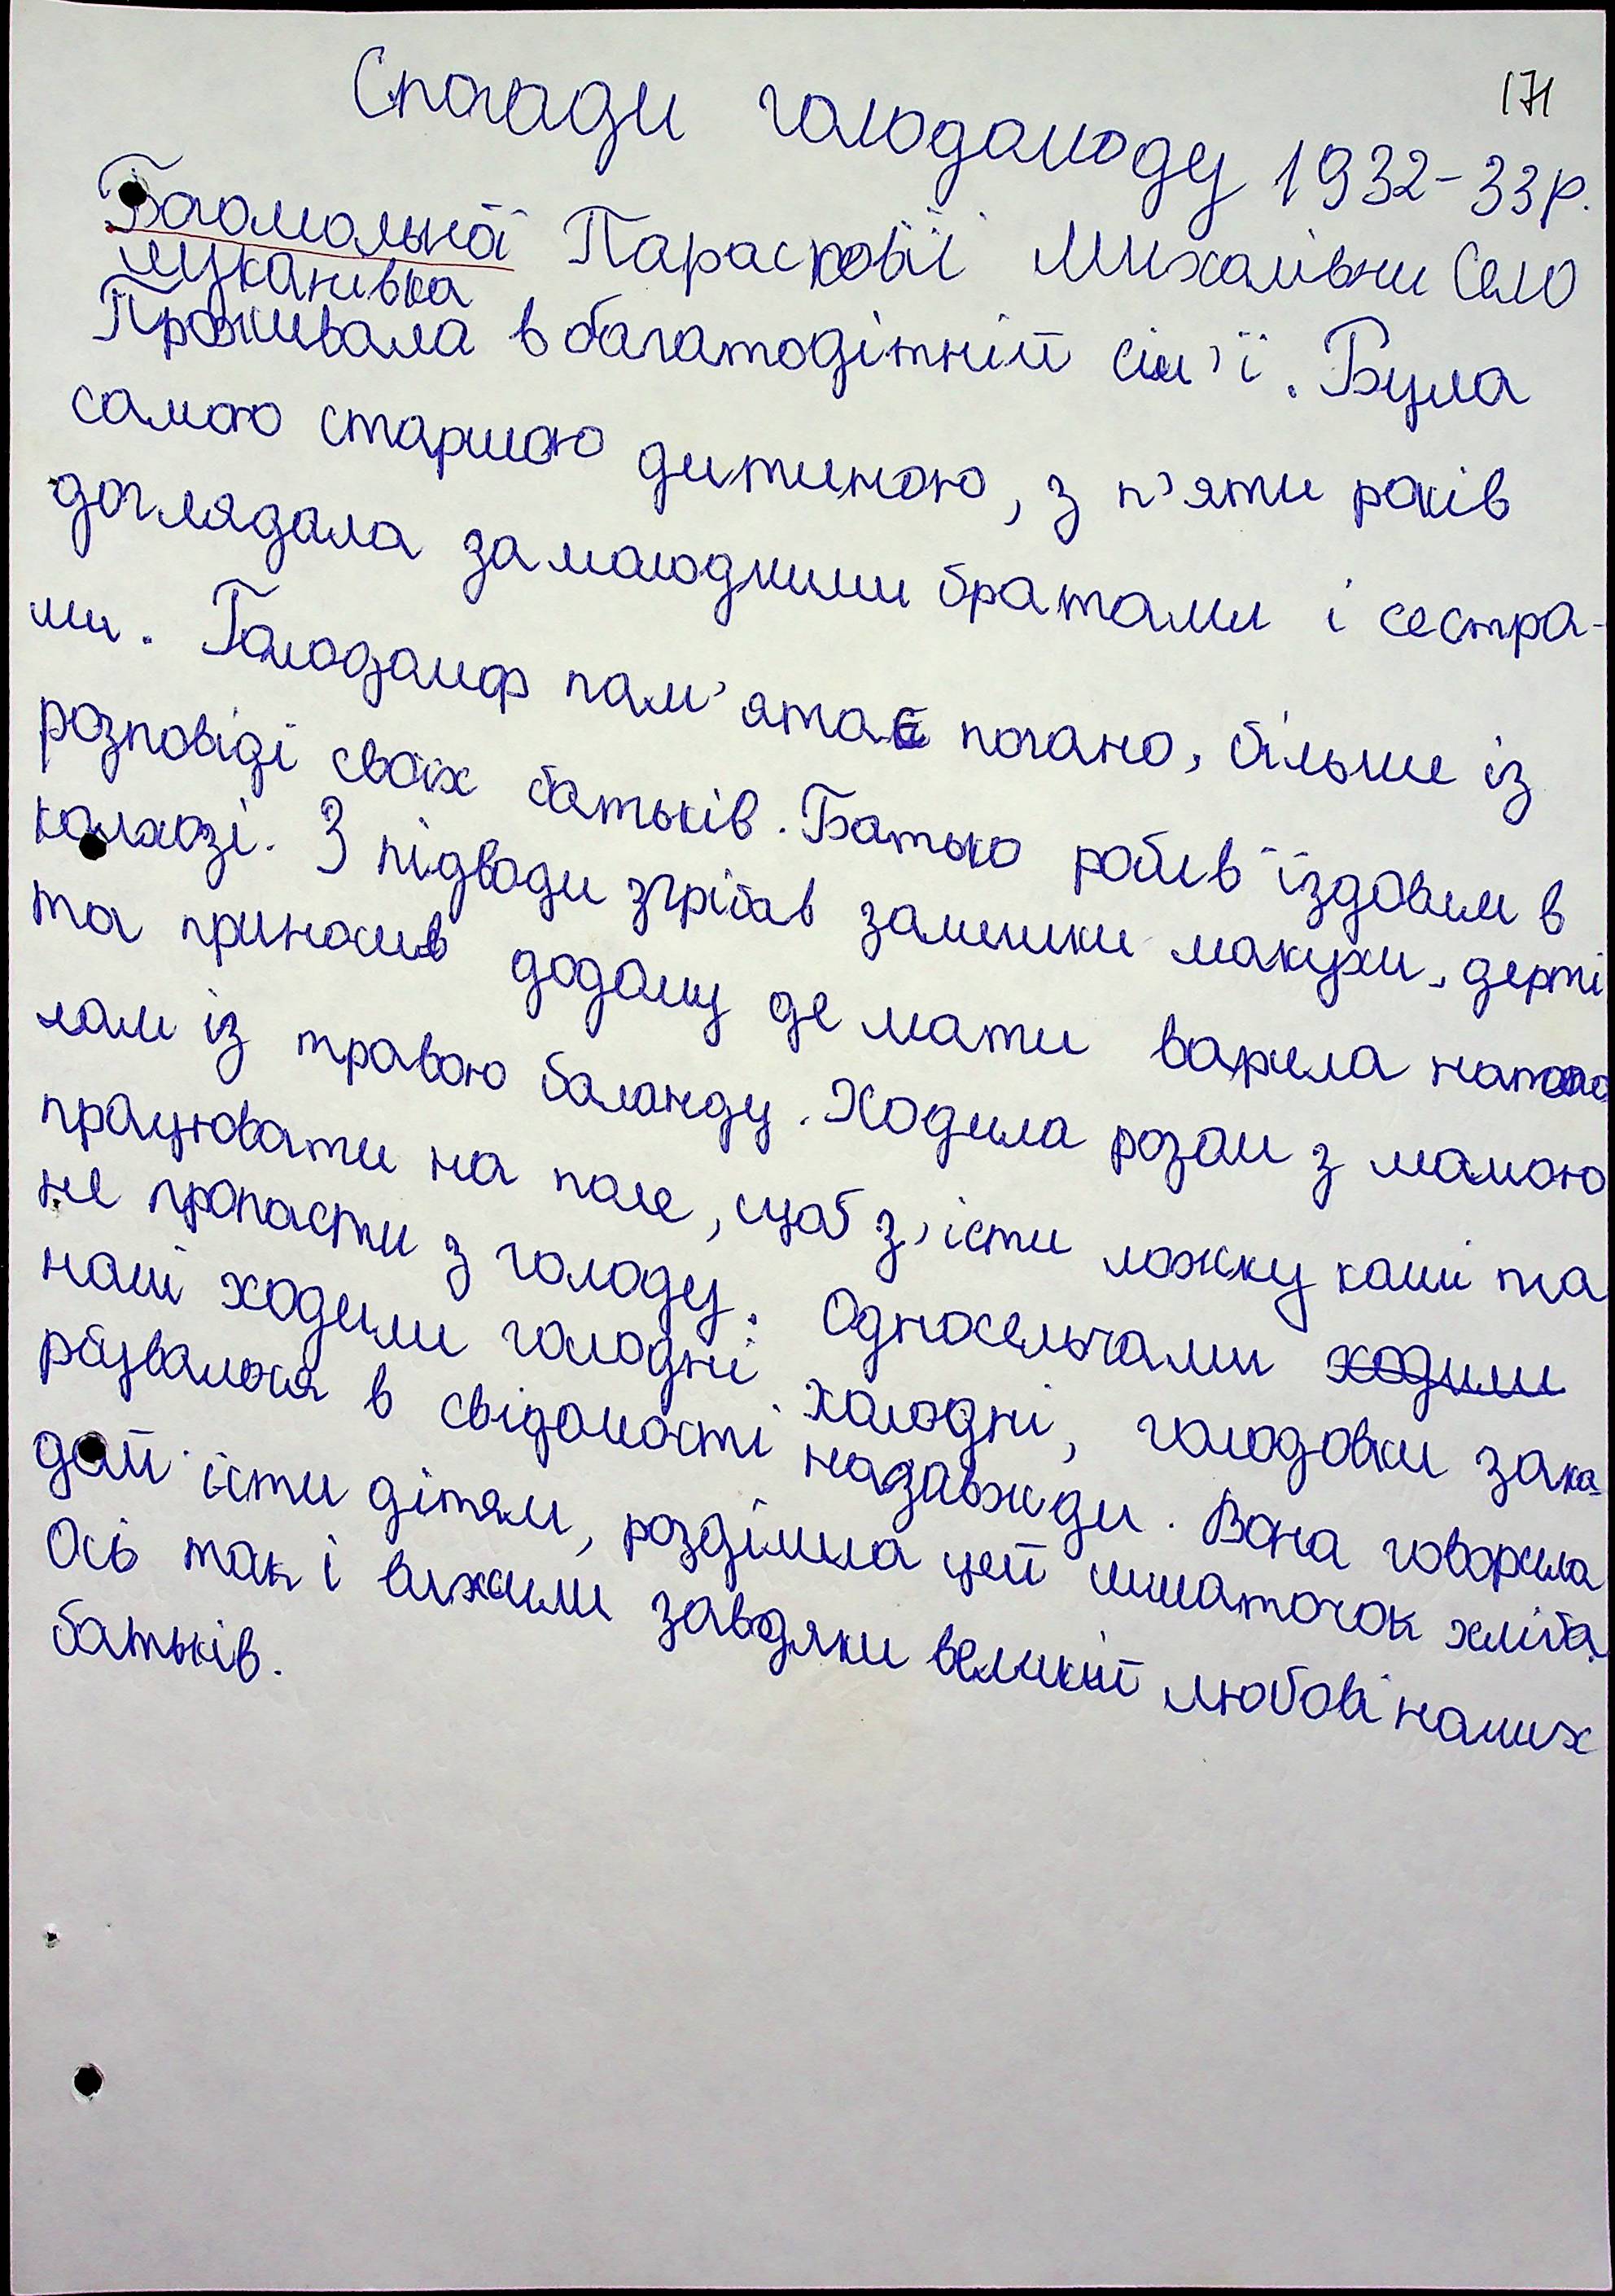 171
Спогади голодомору 1932-33р.
Богомольної Парасковії Михалівни Село
Шуканівка
Проживала в багатодітній сім'ї. Була
самою старшою дитиною, з п'яти років
доглядала за молодшими братами і сестра-
ми. Голодомор пам'ятає погано, більше із
розповіді своїх батьків. Батько робив їздовим в
колхозі. З підводи згрібав залишки макухи, дерті
та приносив додому де мати варила напо
лам із травою баланду. Ходила розам з мамою
працювати на поле, щоб з'їсти ложку каші та
не пропасти з голоду. Односельчами ходили
наші ходили голодні холодні, голодовки зака-
рбувалися в свідомості назавжди. Вона говорила
дай їсти дітям, розділила цей шматочок хліба.
Ось так і вижили завдяки великій любові наших
батьків.